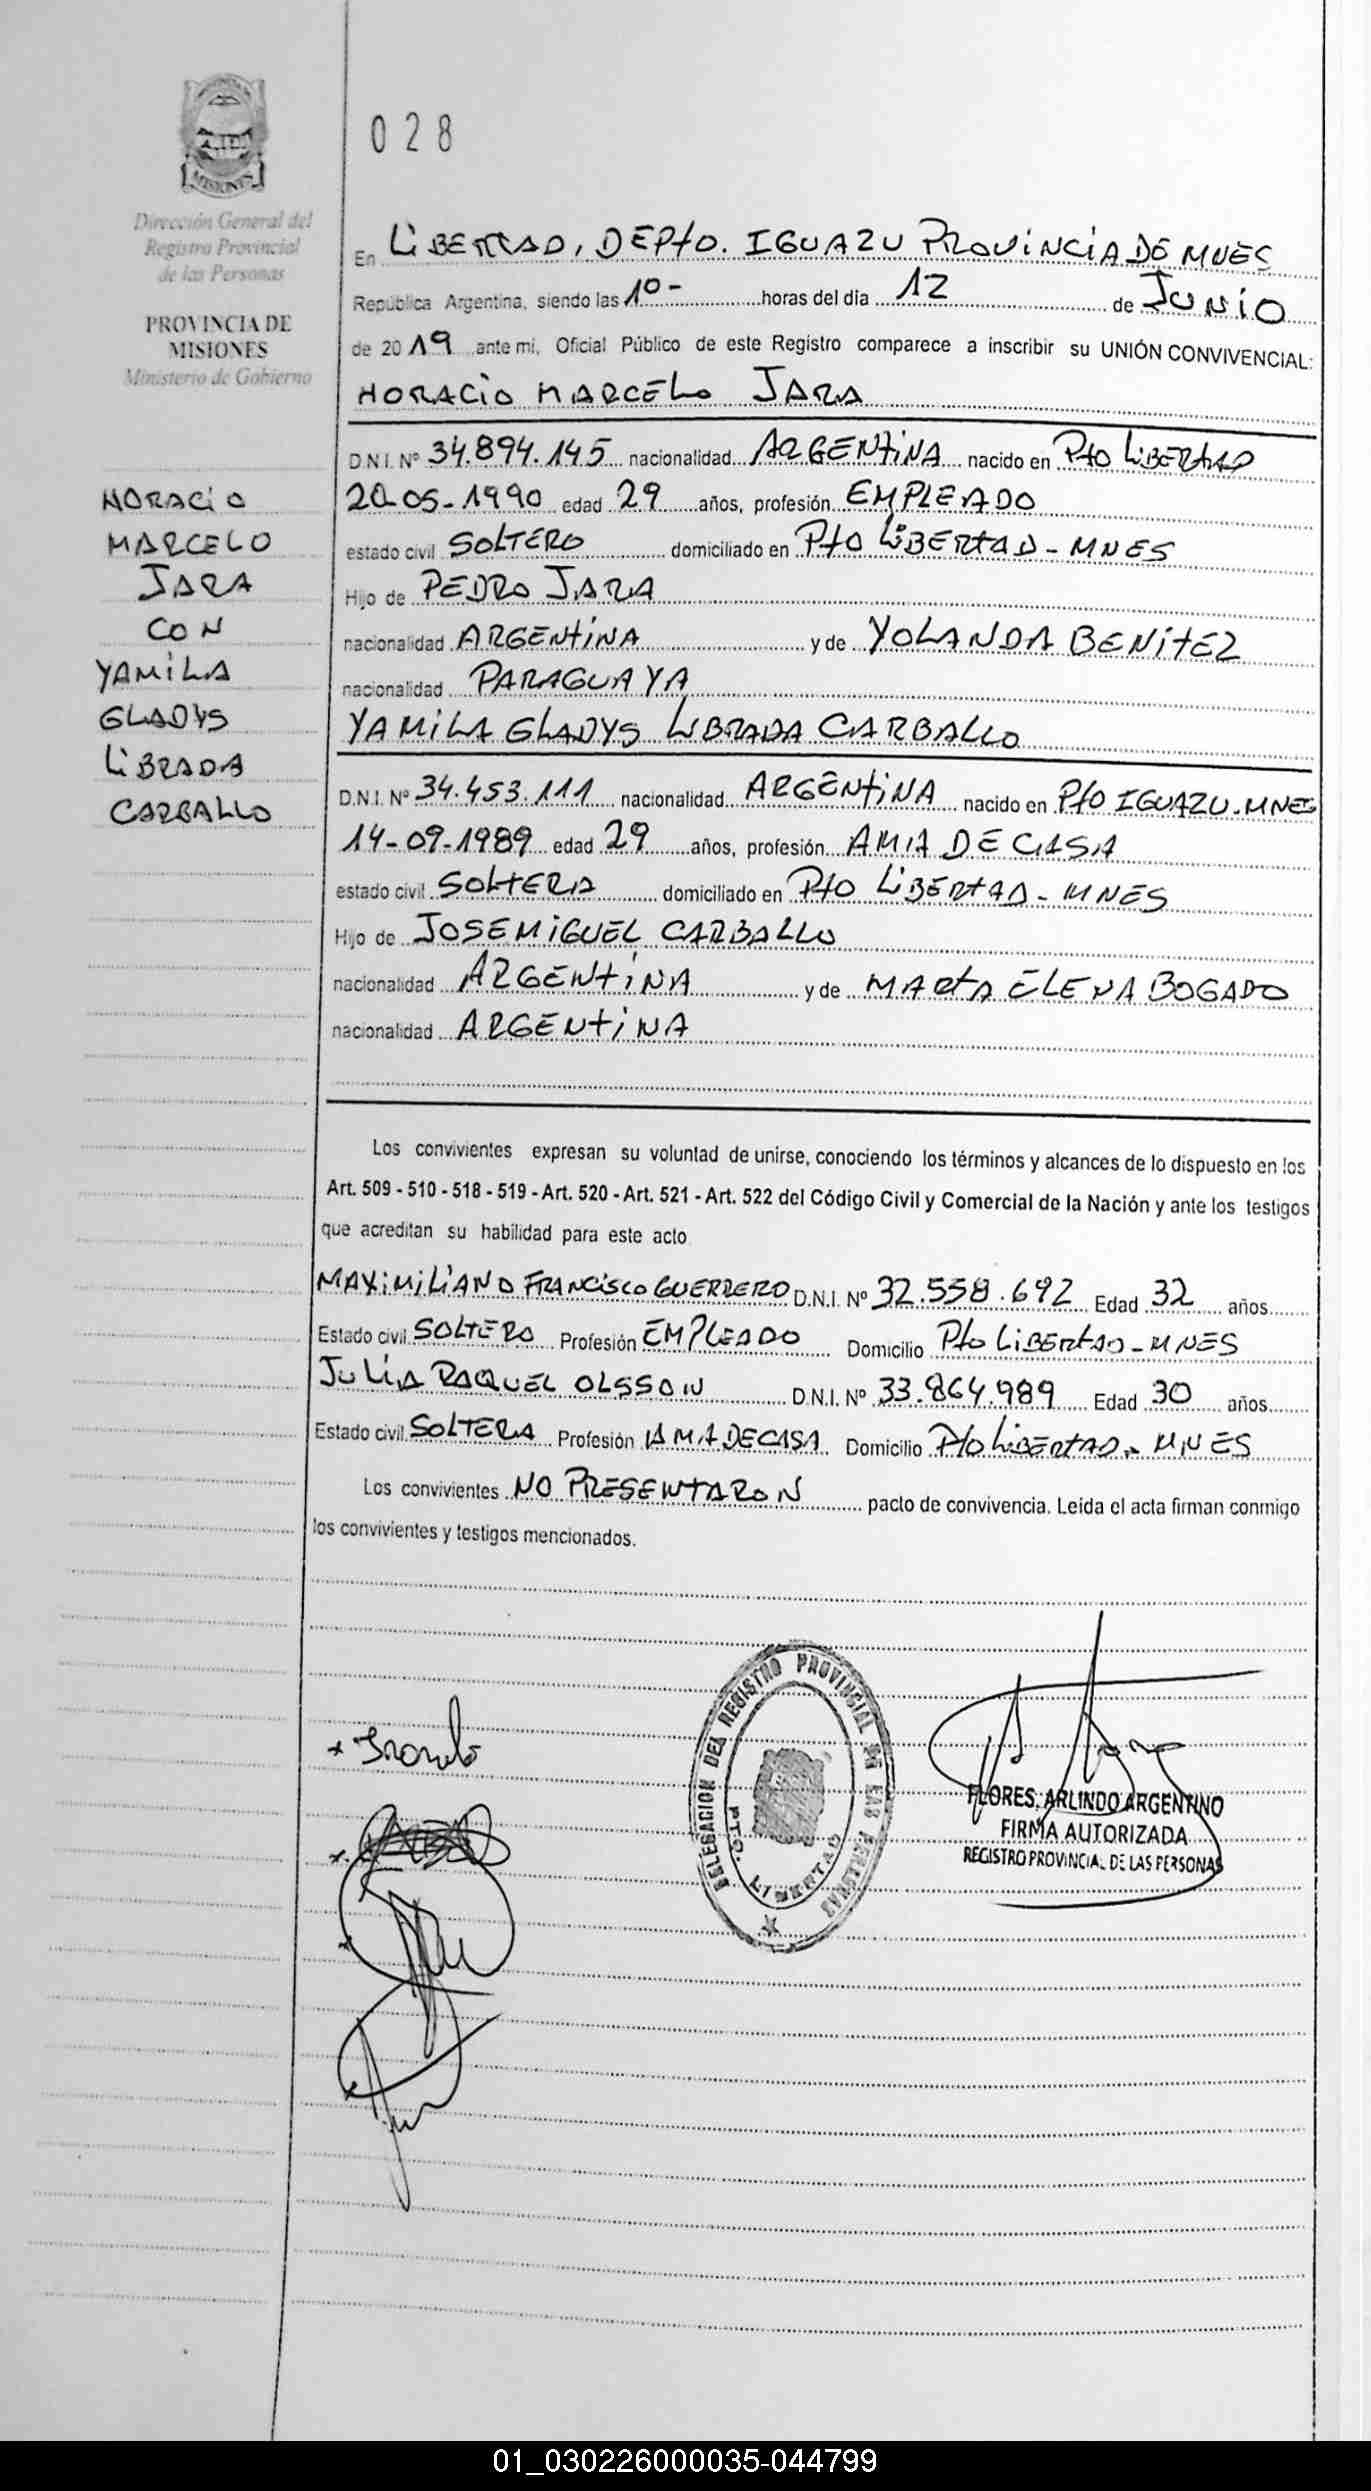 MISIONES
Dirección General del
Registro Provincial
de las Personas
PROVINCIA DE
MISIONES
Ministerio de Gobierno
HORACIO
MARCELO
JARA
CON
YAMILA
GLADYS
LIBRADA
CARBALLO
028
En LIBERTAD, DEPTO. IGUAZU PROVINCIA DE MNES
República Argentina, siendo las 10- horas del día 12 de JUNIO
de 2019 ante mi, Oficial Público de este Registro comparece a inscribir su UNIÓN CONVIVENCIAL:
HORACIO MARCELO JARA
D.N.I. Nº 34.894.145 nacionalidad ARGENTINA nacido en PTO LIBERTAD
20-05-1990 edad 29 años, profesión EMPLEADO
estado civil SOLTERO domiciliado en PTO LIBERTAD - MNES
Hijo de PEDRO JARA
nacionalidad ARGENTINA y de YOLANDA BENITEZ
nacionalidad PARAGUAYA
YAMILA GLADYS LIBRADA CARBALLO
D.N.I. Nº 34.453.111 nacionalidad ARGENTINA nacido en PTO IGUAZU-MNES
14-09-1989 edad 29 años, profesión AMA DE CASA
estado civil SOLTERA domiciliado en PTO LIBERTAD - MNES
Hijo de JOSE MIGUEL CARBALLO
nacionalidad ARGENTINA y de MARTA ELENA BOGADO
nacionalidad ARGENTINA
Los convivientes expresan su voluntad de unirse, conociendo los términos y alcances de lo dispuesto en los
Art. 509 - 510 - 518 - 519 - Art. 520 - Art. 521 - Art. 522 del Código Civil y Comercial de la Nación y ante los testigos
que acreditan su habilidad para este acto
MAXIMILIANO FRANCISCO GUERRERO D.N.I. Nº 32.558.692 Edad 32 años
Estado civil SOLTERO Profesión EMPLEADO Domicilio PTO LIBERTAD - MNES
JULIA RAQUEL OLSSON D.N.I. Nº 33.864.989 Edad 30 años
Estado civil SOLTERA Profesión AMA DE CASA Domicilio PTO LIBERTAD - MNES
Los convivientes NO PRESENTARON pacto de convivencia. Leída el acta firman conmigo
los convivientes y testigos mencionados.
DELEGACION DEL REGISTRO PROVINCIAL DE LAS PERSONAS
PTO. LIBERTAD
FLORES, ARLINDO ARGENTINO
FIRMA AUTORIZADA
REGISTRO PROVINCIAL DE LAS PERSONAS
01_030226000035-044799